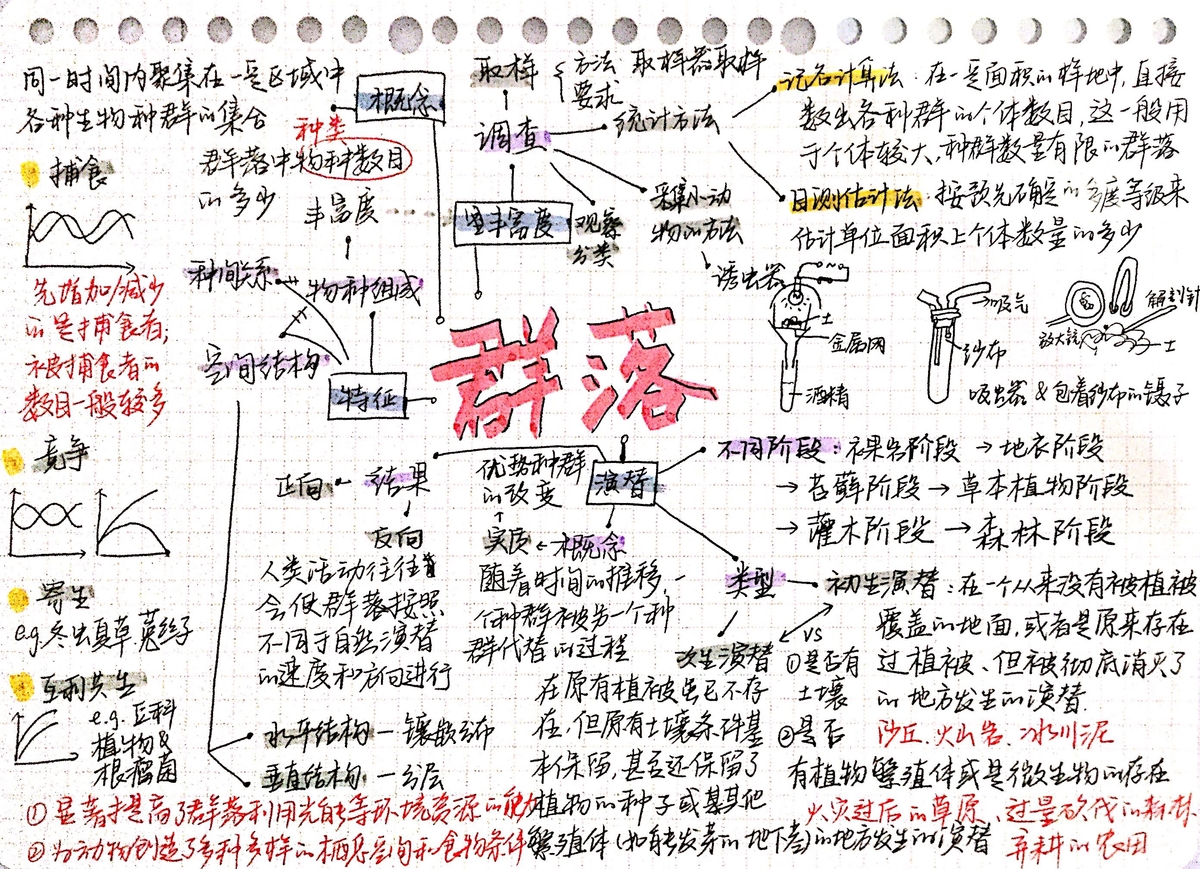 同一时间内聚集在一定区域中
各种生物种群的集合
概念
种类
群落中物种数目
的多少
丰富度
物种组成
种间关系
空间结构
特征
捕食
先增加/减少
的是捕食者;
被捕食者的
数目一般较多
竞争
寄生
e.g.冬虫夏草 菟丝子
互利共生
e.g.豆科
植物&
根瘤菌
取样
方法 取样器取样
要求
调查
统计方法
丰富度
观察
分类
采集小动
物的方法
记名计算法·在一定面积的样地中,直接
数出各种群的个体数目,这一般用
于个体较大、种群数量有限的群落
目测估计法·按预先确定的多度等级来
估计单位面积上个体数量的多少
诱虫器
土
金属网
酒精
吸气
纱布
放大镜
解剖针
土
吸虫器&包着纱布的镊子
群落
演替
不同阶段:裸岩阶段→地衣阶段
→苔藓阶段→草本植物阶段
→灌木阶段→森林阶段
结果
正向
反向
人类活动往往
会使群落按照
不同于自然演替
的速度和方向进行
优势种群
的改变
实质←概念
随着时间的推移,一
个种群被另一个种
群代替的过程
类型
初生演替:在一个从来没有被植被
覆盖的地面,或者是原来存在
过植被、但被彻底消灭了
的地方发生的演替.
沙丘、火山岩、冰川泥
VS
①是否有
土壤
②是否
有植物繁殖体或是微生物的存在
次生演替
在原有植被虽已不存
在,但原有土壤条件基
本保留,甚至还保留了
植物的种子或其他
繁殖体(如能发芽的地下茎)的地方发生的演替
火灾过后的草原、过量砍伐的森林
弃耕的农田
水平结构—镶嵌分布
垂直结构—分层
①显著提高了群落利用光能等环境资源的能力
②为动物创造了多种多样的栖息空间和食物条件